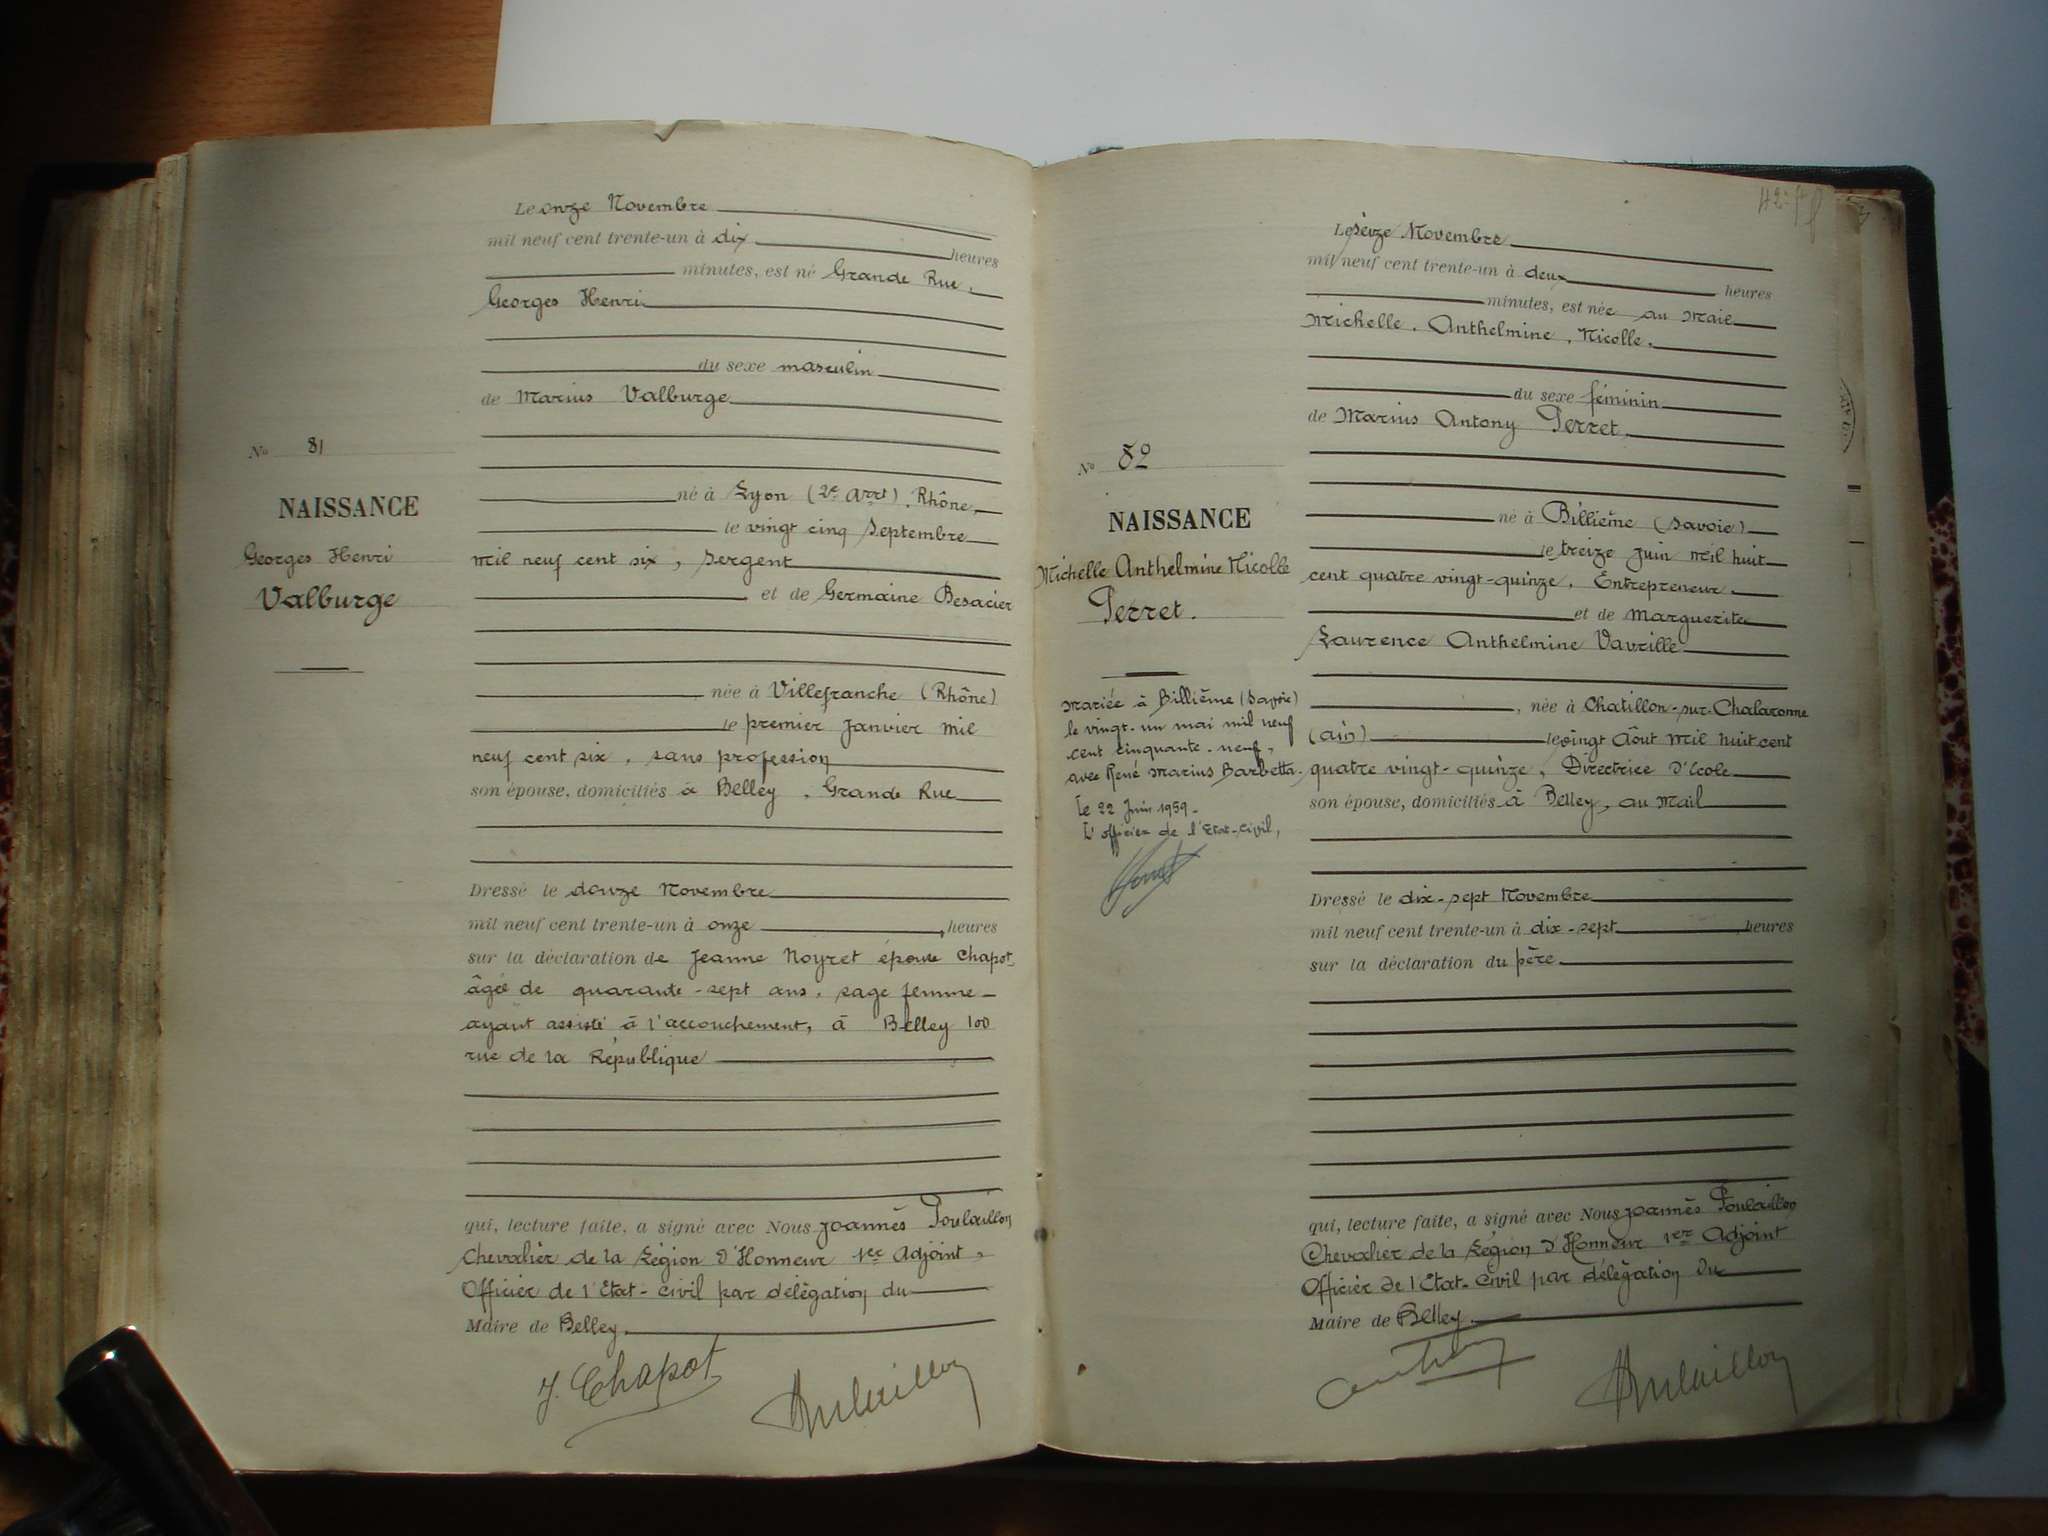 Le onze Novembre
mil neuf cent trente-un à dix heures
minutes, est né Grande Rue,
Georges Henri
du sexe masculin
de Marius Valburge
No 81
né à Lyon (2e Arrt), Rhône,
NAISSANCE
le vingt cinq Septembre
Georges Henri
mil neuf cent six, Sergent
Valburge
et de Germaine Besacier
née à Villefranche (Rhône)
le premier Janvier mil
neuf cent six, sans profession
son épouse, domiciliés à Belley, Grande Rue
Dressé le douze Novembre
mil neuf cent trente-un à onze, heures
sur la déclaration de Jeanne Noyret épouse Chapot
âgée de quarante-sept ans, sage femme
ayant assisté à l'accouchement, à Belley 100
rue de la République
qui, lecture faite, a signé avec Nous Joannès Poulaillon
Chevalier de la Légion d'Honneur 1er Adjoint,
Officier de l'Etat-Civil par délégation du
Maire de Belley
J. Chapot
Poulaillon
Le seize Novembre
mil neuf cent trente-un à deux heures
minutes, est née au Mail
Michelle, Anthelmine, Nicolle,
du sexe féminin
de Marius Antony Perret
No 82
né à Billième (Savoie)
NAISSANCE
le treize Juin mil huit
Michelle Anthelmine Nicolle
cent quatre vingt-quinze, Entrepreneur
Perret.
et de Marguerite
Laurence Anthelmine Vavrille
née à Chatillon-sur-Chalaronne
(Ain) le vingt Août mil huit cent
quatre vingt-quinze, Directrice d'école
son épouse, domiciliés à Belley, au Mail
mariée à Billième (Savoie)
le vingt-un mai mil neuf
cent cinquante-neuf,
avec René Marius Barbetta.
Le 22 Juin 1959.
L'officier de l'Etat-Civil,
Dressé le dix-sept Novembre
mil neuf cent trente-un à dix-sept heures
sur la déclaration du père
qui, lecture faite, a signé avec Nous Joannès Poulaillon
Chevalier de la Légion d'Honneur 1er Adjoint
Officier de l'Etat-Civil par délégation du
Maire de Belley
Poulaillon